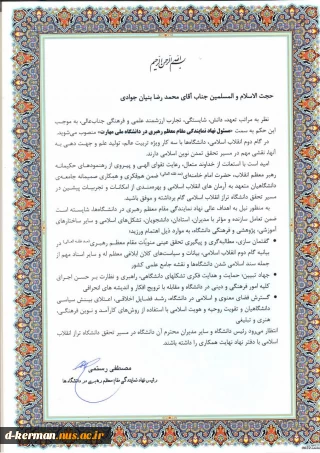 حجت الاسلام و المسلمین جناب آقای محمد رضا بنیان جوادی
نظر به مراتب تعهد، دانش، شایستگی، تجارب ارزشمند علمی و فرهنگی جناب‌عالی، به موجب
این حکم به سمت «مسئول نهاد نمایندگی مقام معظم رهبری در دانشگاه ملی مهارت» منصوب می‌شوید.
در گام دوم انقلاب اسلامی، دانشگاه‌ها با سه کار ویژه تربیت عالم، تولید علم و جهت دهی به
آنها، نقشی مهم در مسیر تحقق تمدن نوین اسلامی دارند.
امید است با استعانت از خداوند متعال، رعایت تقوای الهی و پیروی از رهنمودهای حکیمانه
رهبر معظم انقلاب، حضرت امام خامنه‌ای ضمن هم‌فکری و همکاری صمیمانه جامعه‌ی
دانشگاهیان متعهد به آرمان های انقلاب اسلامی و بهره‌مندی از امکانات و تجربیات پیشین در
مسیر تحقق دانشگاه تراز انقلاب اسلامی گام برداشته و موفق باشید.
به منظور نیل به اهداف عالی نهاد نمایندگی مقام معظم رهبری در دانشگاه‌ها، شایسته است
ضمن تعامل سازنده و مؤثر با مدیران، استادان، دانشجویان، تشکل‌های اسلامی و سایر ساختارهای
آموزشی، پژوهشی و فرهنگی دانشگاه، به موارد ذیل اهتمام ورزید:
• گفتمان سازی، مطالبه‌گری و پیگیری تحقق عینی منویات مقام معظم رهبری در
بیانیه گام دوم انقلاب اسلامی، بیانات و سیاست‌های کلان ابلاغی معظم له و سایر اسناد مهم از
جمله سند اسلامی شدن دانشگاه‌ها و نقشه جامع علمی کشور
• جهاد تبیین، حمایت و هدایت فکری تشکلهای دانشگاهی، راهبری و نظارت بر حسن اجرای
کلیه امور فرهنگی و دینی در دانشگاه و مقابله با ترویج افکار و اندیشه های انحرافی
• گسترش فضای معنوی و اسلامی در دانشگاه، رشد فضایل اخلاقی، اعتلای بینش سیاسی
دانشگاهیان و تقویت روحیه و هویت اسلامی با استفاده از روش‌های کارآمد و نوین فرهنگی،
هنری و تبلیغی
انتظار می‌رود رئیس دانشگاه و سایر مدیران محترم آن دانشگاه در مسیر تحقق دانشگاه تراز انقلاب
اسلامی با دفتر نهاد نهایت همکاری را داشته باشند.
مصطفی رستمی
رئیس نهاد نمایندگی مقام معظم رهبری در دانشگاه‌ها
d-kerman.nus.ac.ir